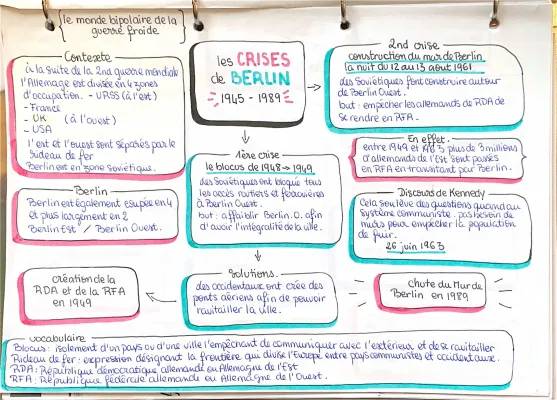 le monde bipolaire de la
guerre froide
Contexte
à la suite de la 2nd guerre mondiale
l'Allemage est divisée en 4 zones
d'occupation. - URSS (à l'est)
- France
- UK (à l'Ouest)
- USA
l'est et l'ouest sont séparés par le
rideau de fer
Berlin est en zone soviétique.
Berlin
Berlin est également coupée en
4 et plus largement en 2
Berlin Est / Berlin Ouest.
création de la
RDA et de la RFA
en 1949
les CRISES
de BERLIN
1945 - 1989
1ère crise
le blocus de 1948 → 1949
des Soviétiques ont bloqué tous
les accès routiers et ferrovières
à Berlin Ouest.
but : affaiblir Berlin. O. afin
d'avoir l'intégralité de la ville.
Solutions.
des occidentaux ont crée des
ponts aériens afin de pouvoir
ravitailler la ville.
2nd crise
construction du mur de Berlin
la nuit du 12 au 13 aout 1961
des Soviétiques font construire autour
de Berlin Ouest.
but : empêcher les allemands de RDA de
se rendre en RFA.
En effet.
entre 1949 et plus de 3 millions
d'allemands de l'Est sont passés
en RFA en transitant par Berlin.
Discours de Kennedy
Cela soulève des questions quand au
système communiste. pas besoin de
murs pour empêcher la population
de fuir.
26 juin 1963
chute du Mur de
Berlin en 1989
vocabulaire
Blocus : isolement d'un pays ou d'une ville l'empêchant de communiquer avec l'extérieur et de se ravitailler
Rideau de fer : expression désignant la frontière qui divise l'Europe entre pays communistes et occidentaux.
RDA : République démocratique allemande ou Allemagne de l'Est
RFA : République fédérale allemande ou Allemagne de l'Ouest.